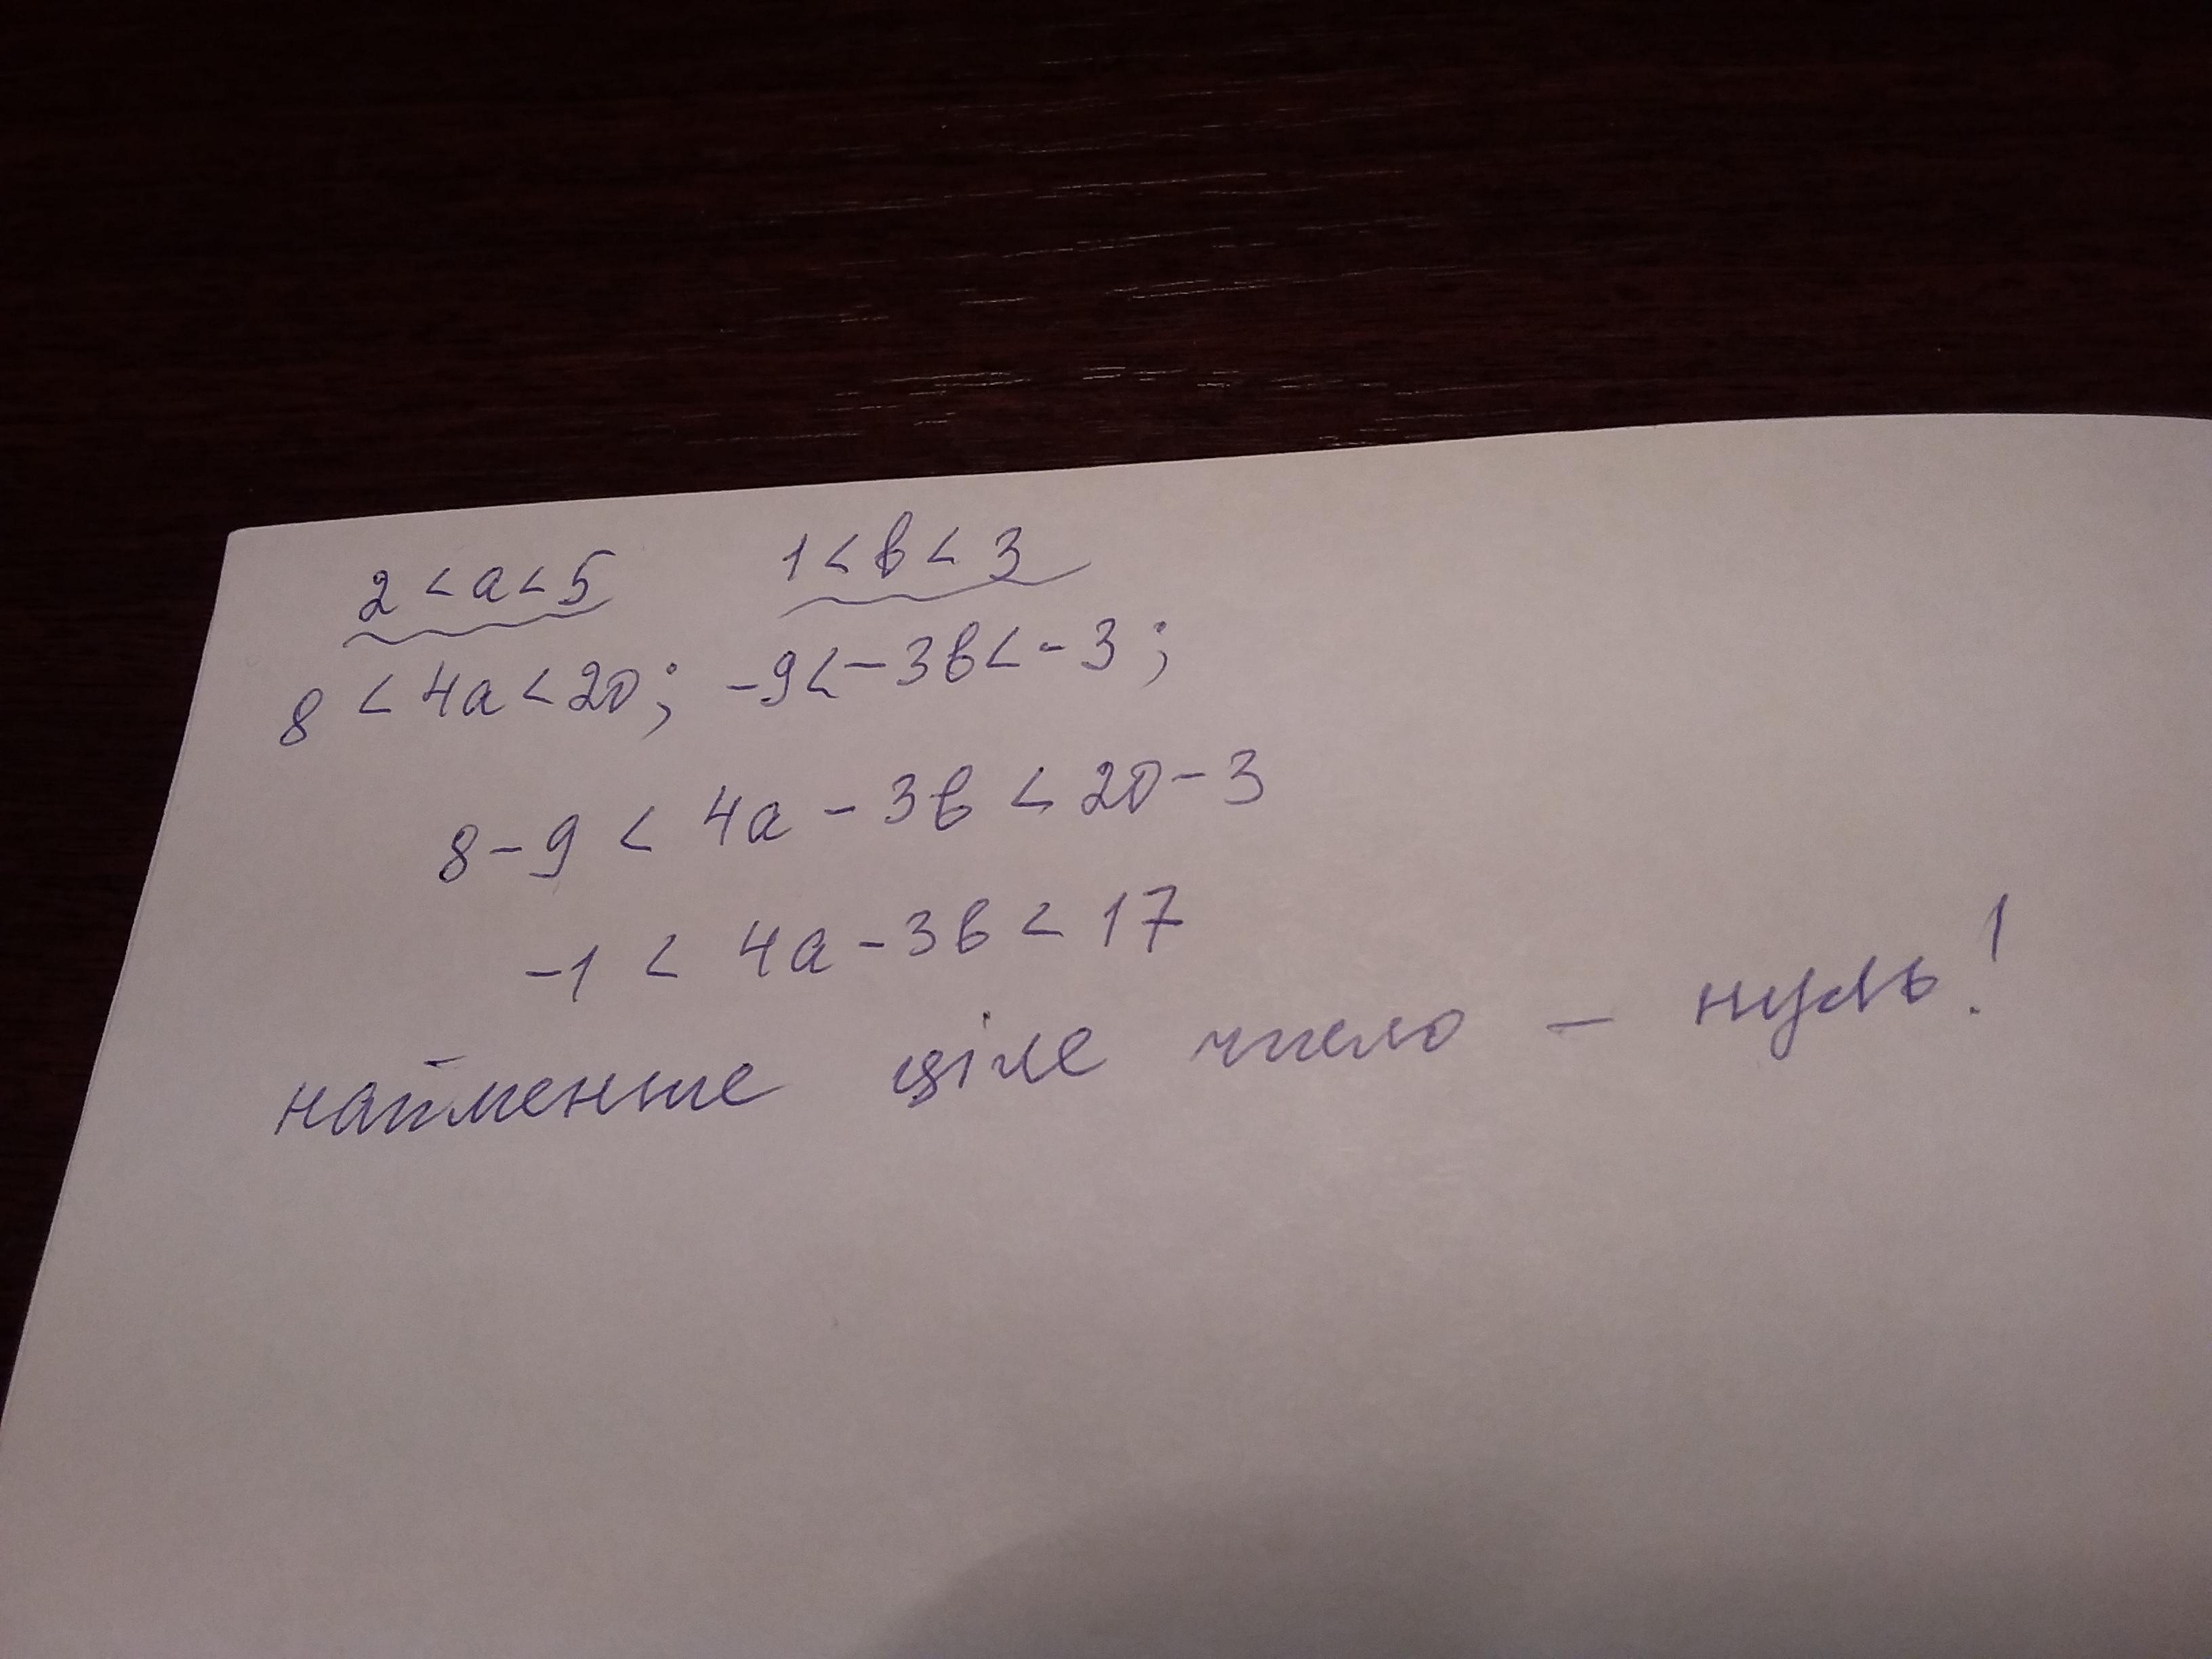 2 < a < 5 1 < b < 3
8 < 4a < 20; -9 < -3b < -3;
8 - 9 < 4a - 3b < 20 - 3
-1 < 4a - 3b < 17
найменше ціле число – нуль!